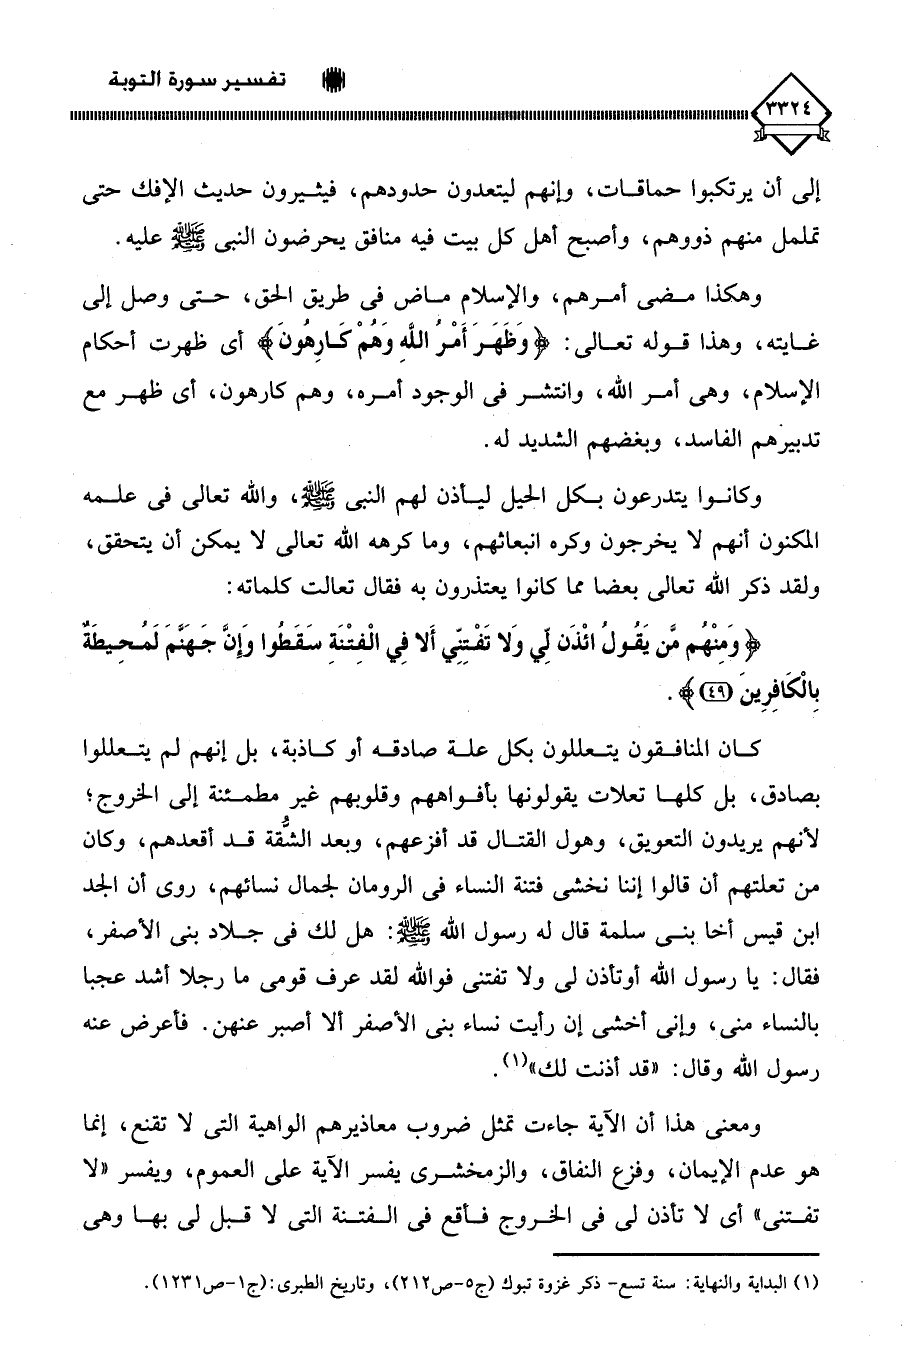 تفسير سورة التوبة
٣٣٢٤
إلى أن يرتكبوا حماقات، وإنهم ليتعدون حدودهم، فيثيرون حديث الإفك حتى
تململ منهم ذووهم، وأصبح أهل كل بيت فيه منافق يحرضون النبى ﷺ عليه.
وهكذا مضى أمرهم، والإسلام ماض فى طريق الحق، حتى وصل إلى
غايته، وهذا قوله تعالى: ﴿وَظَهَرَ أَمْرُ اللَّهِ وَهُمْ كَارِهُونَ﴾ أى ظهرت أحكام
الإسلام، وهى أمر الله، وانتشر فى الوجود أمره، وهم كارهون، أى ظهر مع
تدبيرهم الفاسد، وبغضهم الشديد له.
وكانوا يتدرعون بكل الحيل ليأذن لهم النبى ﷺ، والله تعالى فى علمه
المكنون أنهم لا يخرجون وكره انبعاثهم، وما كرهه الله تعالى لا يمكن أن يتحقق،
ولقد ذكر الله تعالى بعضا مما كانوا يعتذرون به فقال تعالت كلماته:
﴿وَمِنْهُم مَّن يَقُولُ ائْذَن لِّي وَلا تَفْتِنِّي أَلا فِي الْفِتْنَةِ سَقَطُوا وَإِنَّ جَهَنَّمَ لَمُحِيطَةٌ
بِالْكَافِرِينَ (٤٩)﴾.
كان المنافقون يتعللون بكل علة صادقه أو كاذبة، بل إنهم لم يتعللوا
بصادق، بل كلها تعلات يقولونها بأفواههم وقلوبهم غير مطمئنة إلى الخروج؛
لأنهم يريدون التعويق، وهول القتال قد أفزعهم، وبعد الشُّقة قد أقعدهم، وكان
من تعلتهم أن قالوا إننا نخشى فتنة النساء فى الرومان لجمال نسائهم، روى أن الجد
ابن قيس أخا بنى سلمة قال له رسول الله ﷺ: هل لك فى جلاد بنى الأصفر،
فقال: يا رسول الله أوتأذن لى ولا تفتنى فوالله لقد عرف قومى ما رجلا أشد عجبا
بالنساء منى، وإنى أخشى إن رأيت نساء بنى الأصفر ألا أصبر عنهن. فأعرض عنه
رسول الله وقال: «قد أذنت لك»(١).
ومعنى هذا أن الآية جاءت تمثل ضروب معاذيرهم الواهية التى لا تقنع، إنما
هو عدم الإيمان، وفزع النفاق، والزمخشرى يفسر الآية على العموم، ويفسر «لا
تفتنى» أى لا تأذن لى فى الخروج فأقع فى الفتنة التى لا قبل لى بها وهى
(١) البداية والنهاية: سنة تسع- ذكر غزوة تبوك (ج٥-ص٢١٢)، وتاريخ الطبرى:(ج١-ص١٢٣١).